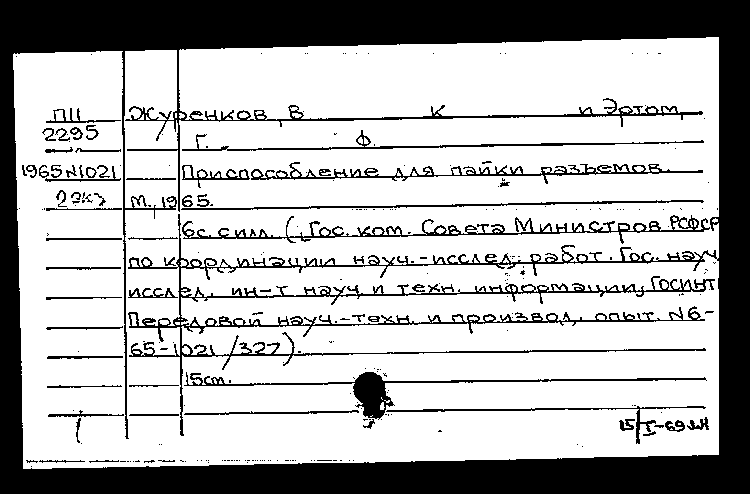 П11 Журенков, В К и Эртом,
2295 Г. Ф.
1965 N1021 Приспособление для пайки разъемов.
2 экз М., 1965.
6с. с илл. (Гос. ком. Совета Министров РСФСР
по координации науч.-исслед. работ. Гос. науч.
исслед. ин-т науч. и техн. информации, ГОСИНТИ
Передовой науч.-техн. и производ. опыт. N6-
65-1021/327).
15см.
15/I-69